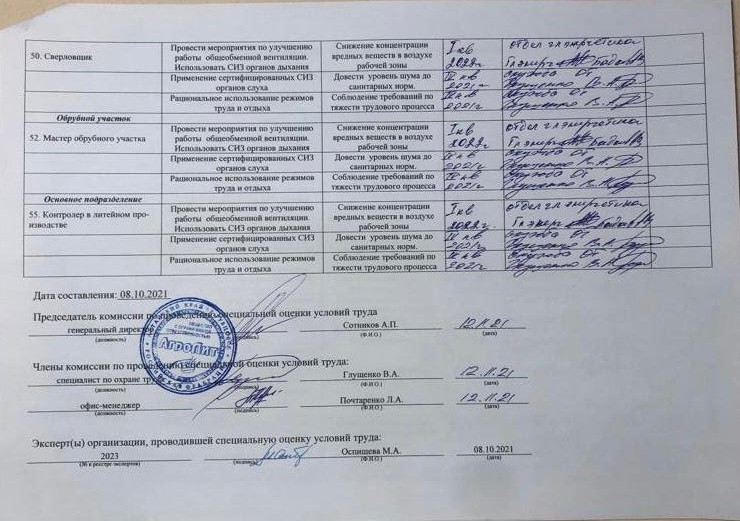 50. Сверловщик
Провести мероприятия по улучшению
работы общеобменной вентиляции.
Использовать СИЗ органов дыхания
Снижение концентрации
вредных веществ в воздухе
рабочей зоны
I кв
2022г
отдел гл энергетика
Гл энерг
Применение сертифицированных СИЗ
органов слуха
Довести уровень шума до
санитарных норм.
IV кв
2021г
служба От
Глущенко В.А.
Рациональное использование режимов
труда и отдыха
Соблюдение требований по
тяжести трудового процесса
IV кв
2021г
служба От
Глущенко В.А.
Обрубной участок
52. Мастер обрубного участка
Провести мероприятия по улучшению
работы общеобменной вентиляции.
Использовать СИЗ органов дыхания
Снижение концентрации
вредных веществ в воздухе
рабочей зоны
I кв
2022г
отдел гл энергетика
Гл энерг
Применение сертифицированных СИЗ
органов слуха
Довести уровень шума до
санитарных норм.
IV кв
2021г
служба От
Глущенко В.А.
Рациональное использование режимов
труда и отдыха
Соблюдение требований по
тяжести трудового процесса
IV кв
2021г
служба От
Глущенко В.А.
Основное подразделение
55. Контролер в литейном про-
изводстве
Провести мероприятия по улучшению
работы общеобменной вентиляции.
Использовать СИЗ органов дыхания
Снижение концентрации
вредных веществ в воздухе
рабочей зоны
I кв
2022г.
отдел гл энергетика
Гл энерг
Применение сертифицированных СИЗ
органов слуха
Довести уровень шума до
санитарных норм.
IV кв
2021г
служба От
Глущенко В.А.
Рациональное использование режимов
труда и отдыха
Соблюдение требований по
тяжести трудового процесса
IV кв
2021г
служба От
Глущенко В.А.
Дата составления: 08.10.2021
Председатель комиссии по проведению специальной оценки условий труда
генеральный директор Сотников А.П. 12.11.21
(должность) (подпись) (Ф.И.О.) (дата)
АгроЛит
Члены комиссии по проведению специальной оценки условий труда:
специалист по охране труда Глущенко В.А. 12.11.21
(должность) (подпись) (Ф.И.О.) (дата)
офис-менеджер Почтаренко Л.А. 12.11.21
(должность) (подпись) (Ф.И.О.) (дата)
Эксперт(ы) организации, проводившей специальную оценку условий труда:
2023 Оспищева М.А. 08.10.2021
(№ в реестре экспертов) (подпись) (Ф.И.О.) (дата)